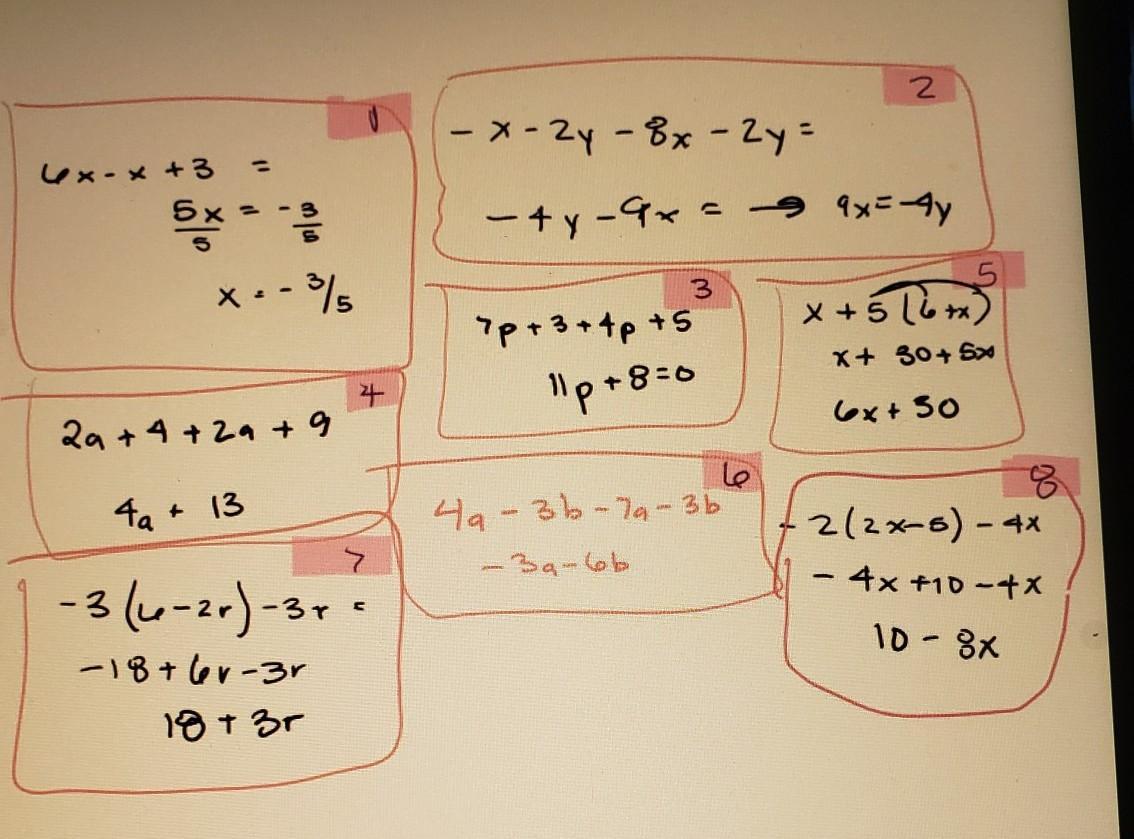 1
6x - x + 3 =
5x/5 = - 3/5
x = - 3/5
2
- x - 2y - 8x - 2y =
- 4y - 9x = → 9x = -4y
3
7p + 3 + 4p + 5
11p + 8 = 0
5
x + 5 (6 + x)
x + 30 + 5x
6x + 30
4
2a + 4 + 2a + 9
4a + 13
6
4a - 3b - 7a - 3b
- 3a - 6b
8
- 2(2x - 5) - 4x
- 4x + 10 - 4x
10 - 8x
7
-3 (6 - 2r) - 3r =
-18 + 6r - 3r
18 + 3r